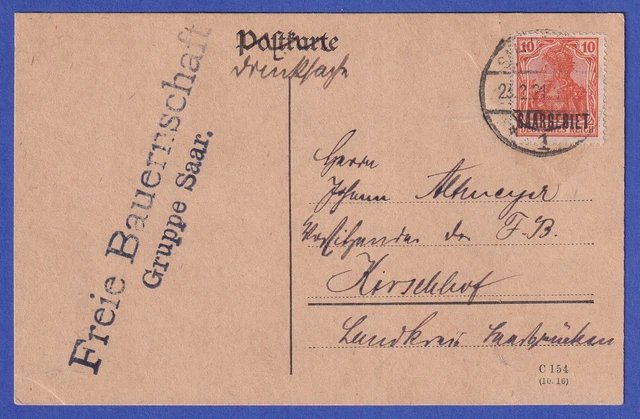 Postkarte
Drucksache
Freie Bauernschaft
Gruppe Saar.
10 10
SAARGEBIET
23.2.21
1
Herrn
Johann Altmeyer
Vorsitzender der F.B.
Kirschhof
Landkreis Saarbrücken
C 154
(10. 16)